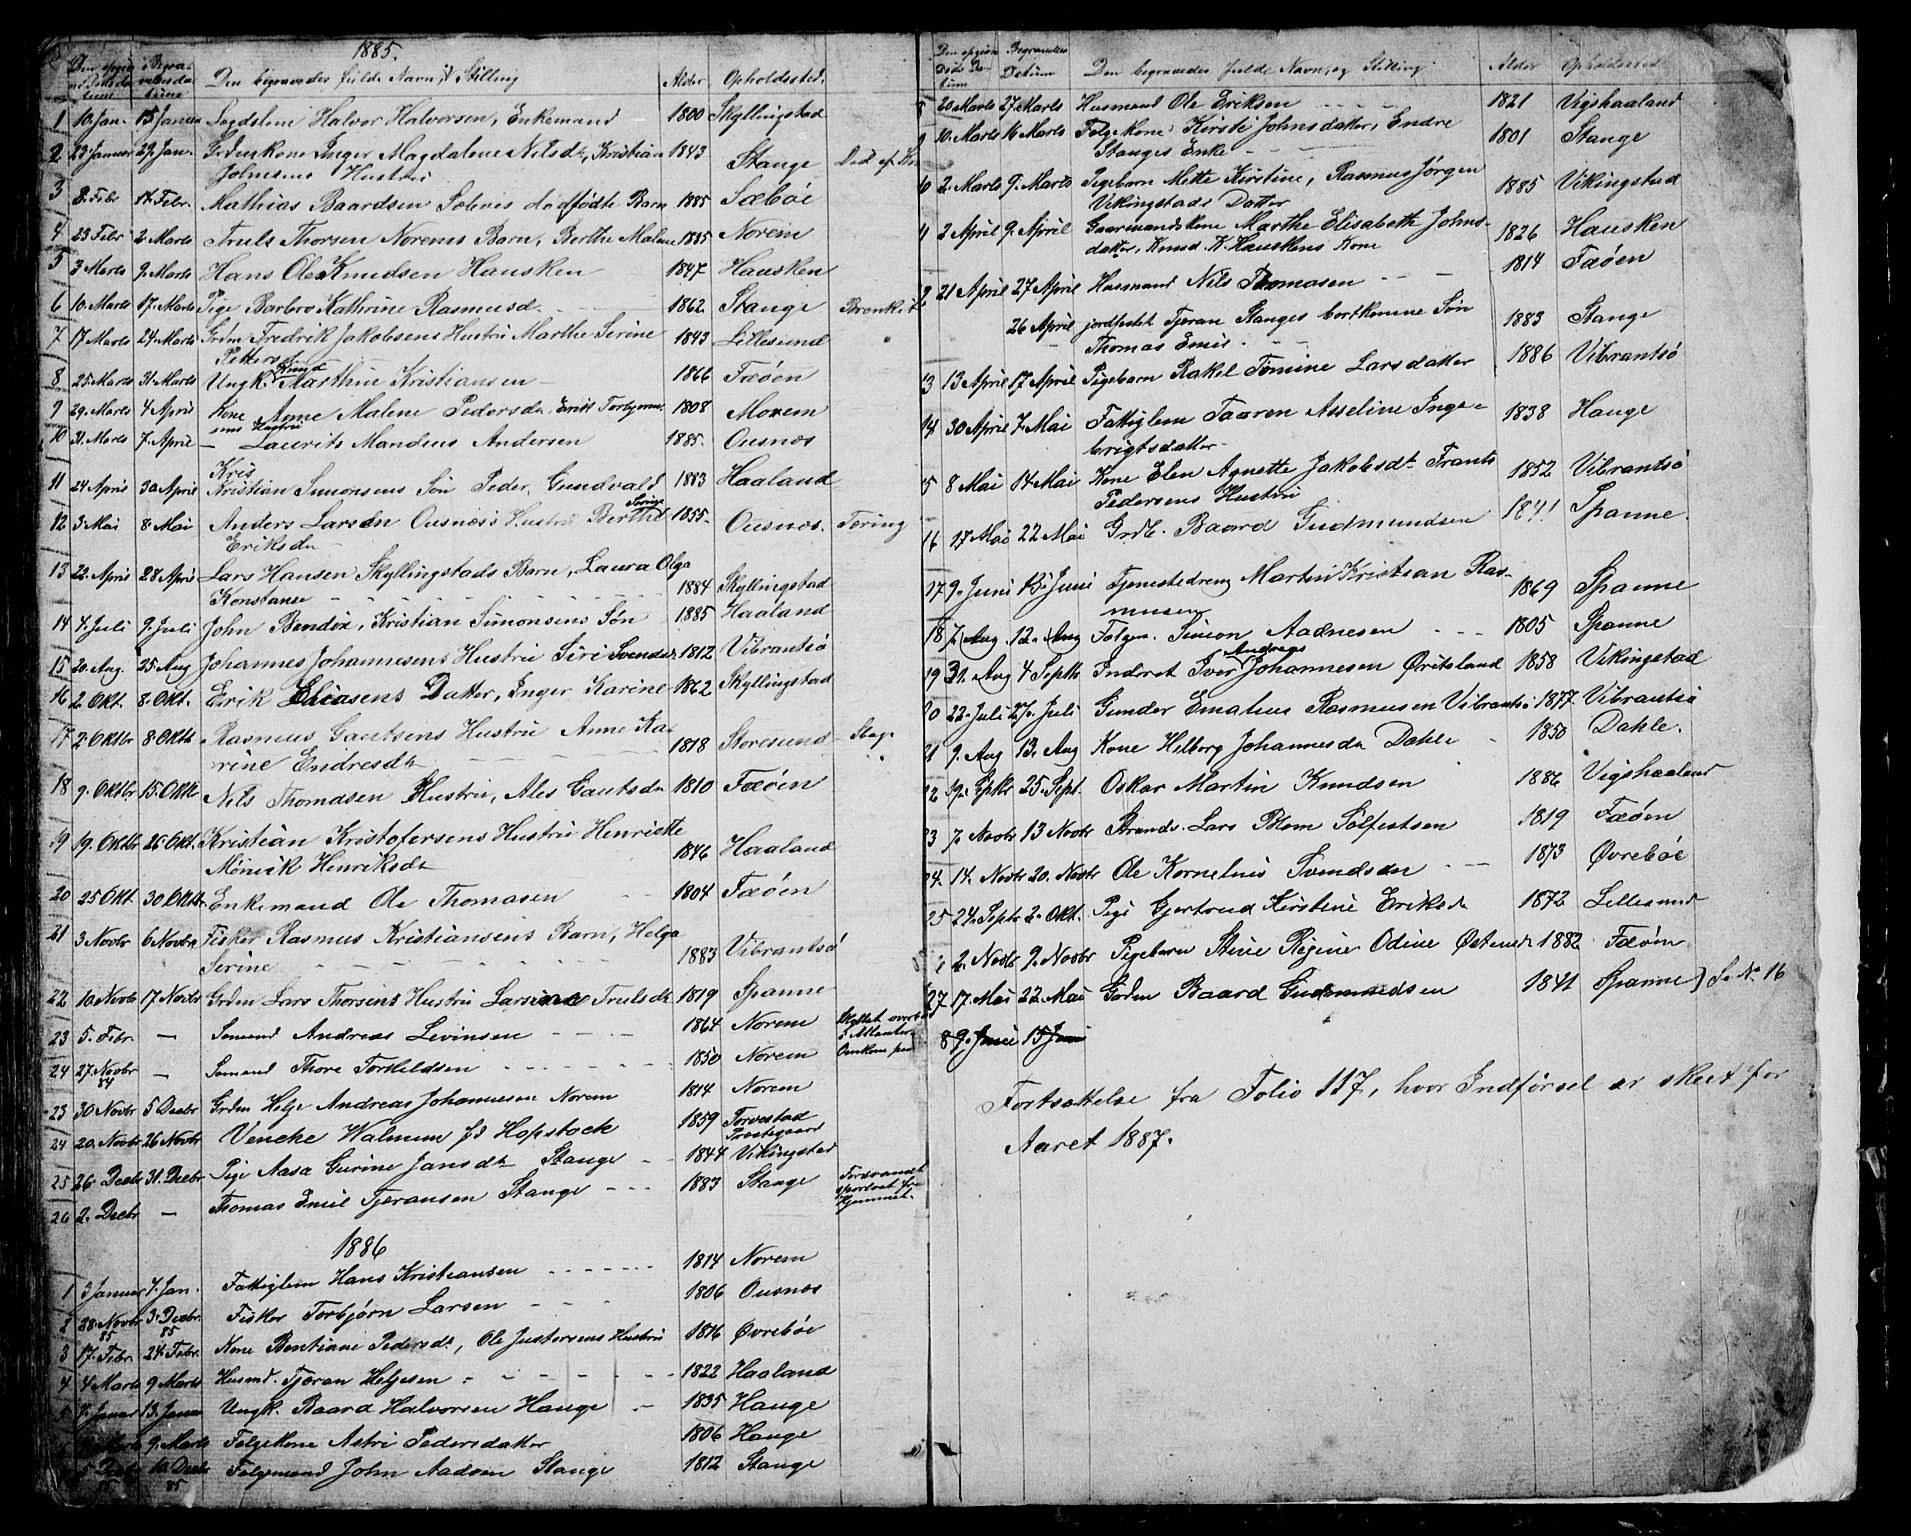 1885.
Den opgivne Døds Datum Begravelses datum Den begravedes fulde Navn, Stilling Alder Opholdssted.
1 10. Jan. 15. Januar Logdslem Halvor Halvorsen, Enkemand 1800 Skyllingstad
2 23 Januar 29. Jan. Grdmskone Inger Magdalene Nilsdt, Kristian 1843 Stange Død af
Johnsens Hustru
3 8. Febr 14. Febr. Mathias Baardsen Sæbøes dødfødte Barn 1885 Sæbøe
4 23 Febr 2. Marts Truls Thorsen Norems Barn, Berthe Malene 1885 Norem
5 3 Marts 9. Marts Hans Ole Knudsen Hausken 1847 Hausken
6 10. Marts 17. Marts Pige Barbro Kathrine Rasmusd. 1862 Stange Bronkit
7 17 Marts 24. Marts Grdm Fredrik Jakobsens Hustru Marthe Serine 1843 Lillesund "
Pettersd
8 25. Marts 31. Marts Ungk. Knud Marthin Kristiansen 1866 Fæøen
9 29. Marts 4 April Kone Anne Malene Pedersdn, Erik Torbjørn- 1808 Norem
sens Hustru
10 31. Marts 7. April — Laurits Mandeus Andersen 1885. Ousnæs
Kris
11 24 April 30 April Kristian Simonsens Søn Peder Grundvald 1883 Haaland
12 3. Mai 8. Mai Anders Larsen Ousnæs's Hustru Berthe Serine 1855. Ousnæs. Tæring
Eriksdn
13 22. April 28 April Lars Hansen Skyllingstads Barn, Laura Olga
Konstanse 1884 Skyllingstad
14 4. Juli 9. Juli John Bendix, Kristian Simonsens Søn 1885 Haaland
15 20. Aug. 25 Aug Johannes Johannesens Hustru Siri Svendsdt. 1812 Vibrantsø
16 2. Okt. 8. Okt. Erik Eliasens Datter, Inger Karine 1862 Skyllingstad
17 2. Oktbr 8 Oktb Rasmus Gautsens Hustru Anne Ka- 1818 Storesund Slag.
rine Endresdt
18 9. Oktbr 15. Oktb Nils Thomasen Hustru, Ales Gautsdn 1810 Fæøen
19 19. Oktbr 26. Okt. Kristian Kristofersens Hustru Henriette
Mønnik Henriksdt 1846 Haaland
20 25 Okt. 30. Oktbr. Enkemand Ole Thomasen 1804 Fæøen
21 3 Novbr 6 Novbr Fisker Rasmus Kristiansens Barn, Helga
Serine 1883 Vibrantsø
22 10. Novb 17 Novbr Grdm Lars Thorsens Hustru Larsine Trulsdt 1819 Spanne
23 5. Febr. — Sømand Andreas Levinsen 1864 Norem Skyllet overbord
i Atlanter-
24 27. Novbr — Sømand Thore Torkildsen 1850 Norem Omkom paa
84
23 30 Novbr 5 Decbr Grdm Helge Andreas Johannesen Norem 1814 Norem
24 20. Novbr 26 Novbr Vencke Walmum fd Hopstock 1859 Torvestad
Præstegaard
25 26. Decbr 31. Decbr Pige Aasa Gurine Jansdt Stange 1844 Vikingstad
26 2. Decbr — Thomas Emil Tjøransen Stange 1883 Stange Forsvandt
sporløst fra
Hjemmet.
1886
1 3 Januar 7. Jan. Fattiglem Hans Kristiansen 1814 Norem
2 28. Novbr 3. Decbr. Fisker Torbjørn Larsen 1806 Ousnæs
85 85
3 17. Febr. 24. Febr. Kone Bentiane Pedersdt, Ole Justersens Hustru 1816 Øvrebøe
4 4 Marts 9 Marts Husmd. Tjøran Helgesen 1822 Haaland
5 7. Januar 13. Januar Ungk. Baard Halvorsen Hauge 1835 Hauge
9. Marts Følgekone Astri Pedersdatter 1806 Hauge
5 Decbr 10 Decbr Følgemand John Aadsen Stange 1812 Stange
85 85
Den opgivne Døds Datum Begravelses Datum Den begravedes fulde Navn, og Stilling Alder Opholdssted
8 20. Marts 27. Marts Husmand Ole Eriksen 1821 Vigshaaland
9 10. Marts 16 Marts Følgekone Kirsti Johnsdatter, Endre 1801 Stange
Stanges Enke
10 2. Marts 9. Marts Pigebarn Mette Kirstine, Rasmus Jørgen 1885 Vikingstad
Vikingstads Datter
11 2 April 9. April Gaarmandskone Marthe Elisabeth Johns- 1826 Hausken
datter, Knud K. Hauskens Kone
12 21 April 27 April Husmand Nils Thomasen 1814 Fæøen
26 April jordfestet Tjøran Stanges bortkomne Søn 1883 Stange
Thomas Emil
13 13 April 17 April Pigebarn Rakel Tomine Larsdatter 1886 Vibrantsø
14 30 April 7. Mai Fattiglem Taaren Asseline Inge- 1838 Hauge
brigtsdatter
15 8 Mai 14 Mai Kone Elen Agnette Jakobsdt. Frants 1852 Vibrantsø
Pedersens Hustru
16 17 Mai 22 Mai Grdb. Baard Gudmundsen 1841 Spanne.
17 9. Juni 13. Juni Tjenestedreng Martin Kristian Ras- 1869 Spanne
musen
18 7. Aug 12. Aug Følgm. Simon Aadnesen 1805 Spanne
19 31. Aug 4 Septb Inderst Iver Andreas Johannesen Øritsland 1858 Vikingstad
20 22. Juli 27. Juli Gunder Ematius Rasmusen Vibrantsø 1877. Vibrantsø
21 9. Aug 13. Aug Kone Helborg Johannesdn Dahle 1850 Dahle.
22 19. Sptbr 25. Sept. Oskar Martin Knudsen 1886 Vigshaaland
23 7. Novbr 13 Novbr Strands. Lars Blom Solfestsen 1819 Fæøen
24. 14. Novbr 20. Novbr Ole Kornelius Svendsen 1873 Øvrebøe
25 24. Septr 2. Okt. Pige Gjertrud Kirstine Eriksdn 1872 Lillesund
2. Novbr 9. Novbr Pigebarn Stine Regine Odine Østensdt 1882 Fæøen
27 17. Mai 22. Mai Gardm Baard Gudmundsen 1841 Spanne) Se No 16
8 9. Juni 15 Juni
Fortsættelse fra Folio 117, hvor Indførsel er skeet for
Aaret 1887.